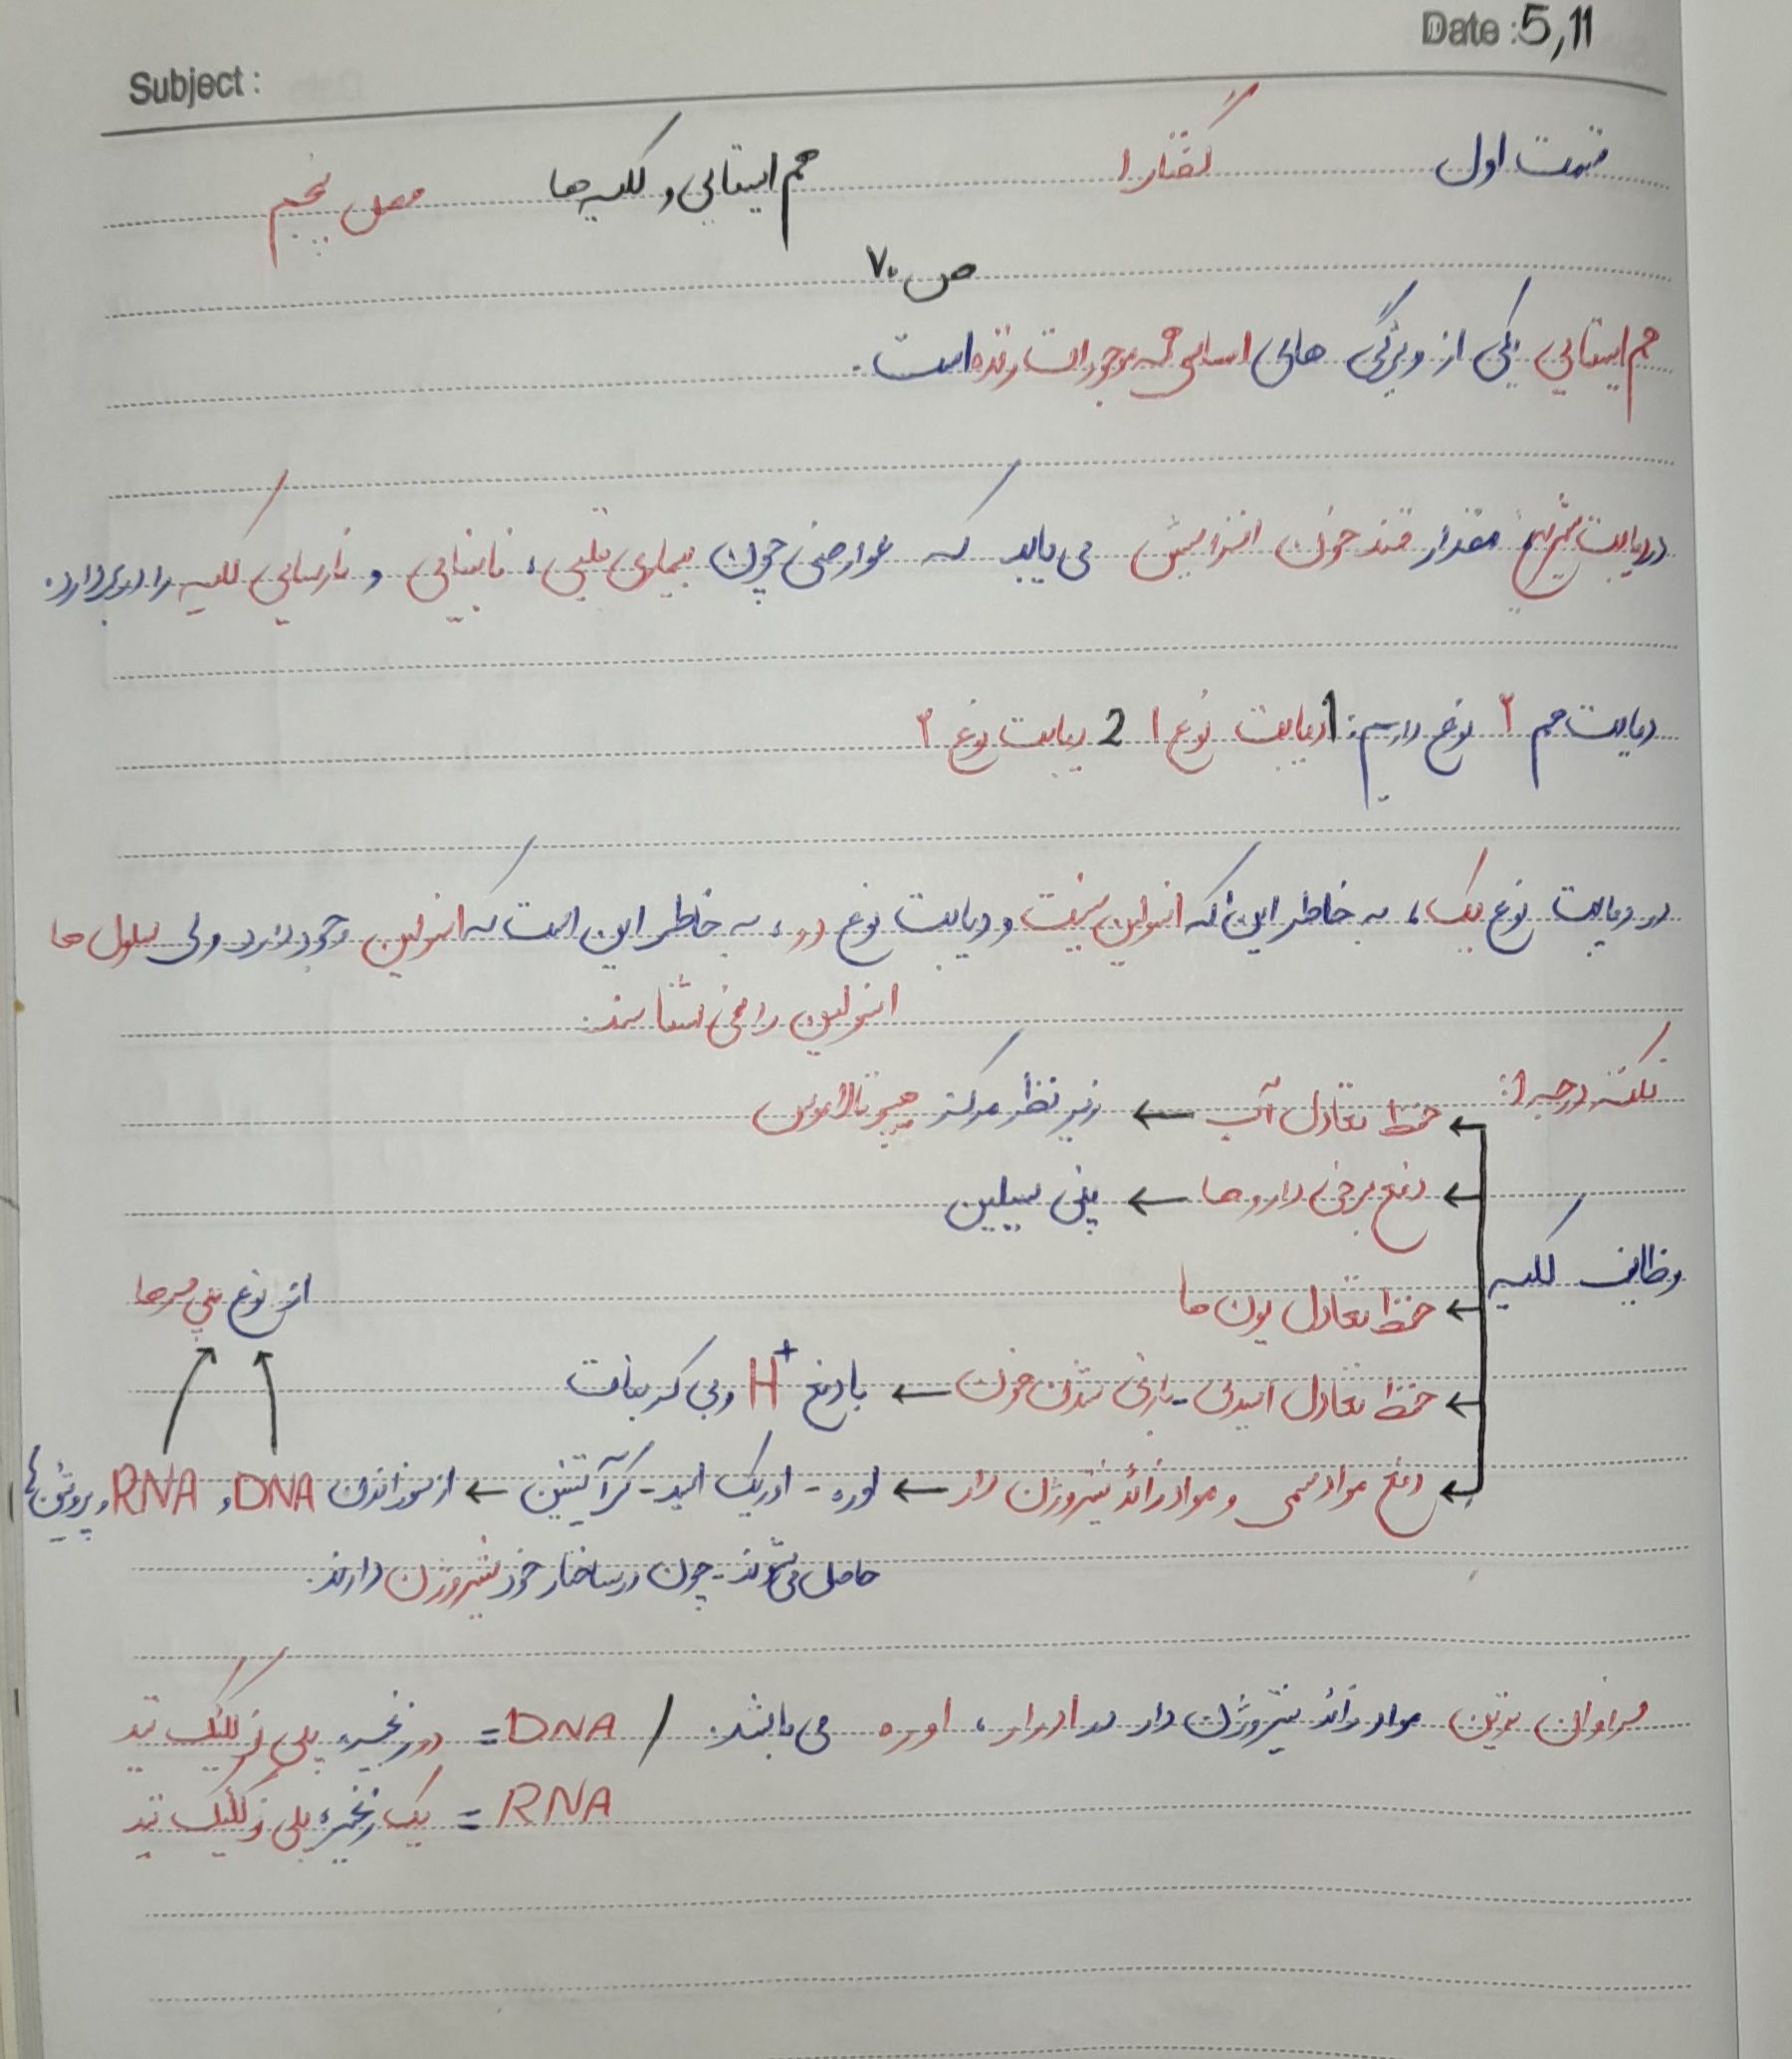 Date : 5,11
Subject :
قسمت اول گفتار ۱ هم ایستایی و کلیه ها فصل پنجم
ص ۷۰
هم ایستایی یکی از ویژگی های اساسی همه موجودات زنده است.
در دیابت شیرین مقدار قند خون افزایش می یابد که عوارضی چون بیماری قلبی، نابینایی و نارسایی کلیه را در بردارد.
دیابت هم ۲ نوع داریم: 1 دیابت نوع ۱ 2 دیابت نوع ۲
در دیابت نوع یک، به خاطر این که انسولین نیست و دیابت نوع دو، به خاطر این است که انسولین وجود دارد ولی سلول ها
انسولین را نمی شناسند.
نکته درجه 1:
وظایف کلیه
← حفظ تعادل آب ← زیر نظر مرکز هیپوتالاموس
← دفع برخی داروها ← پنی سیلین
← حفظ تعادل یون ها
← حفظ تعادل اسیدی - بازی شدن خون ← با دفع H+ و بی کربنات
← دفع مواد سمی و مواد زائد نیتروژن دار ← اوره - اوریک اسید - کرآتینین ← از سوزاندن DNA و RNA و پروتئین ها
از نوع پلی مرها
حاصل می شوند - چون در ساختار خود نیتروژن دارند.
فراوان ترین مواد زائد نیتروژن دار در ادرار، اوره می باشد. / DNA = دو زنجیره پلی نوکلئوتید
RNA = یک زنجیره پلی نوکلئوتید